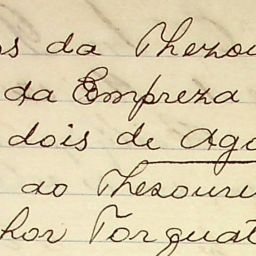 os da Thezou
da Empreza
dois de Ago
ao Thesoure
hor Torquat